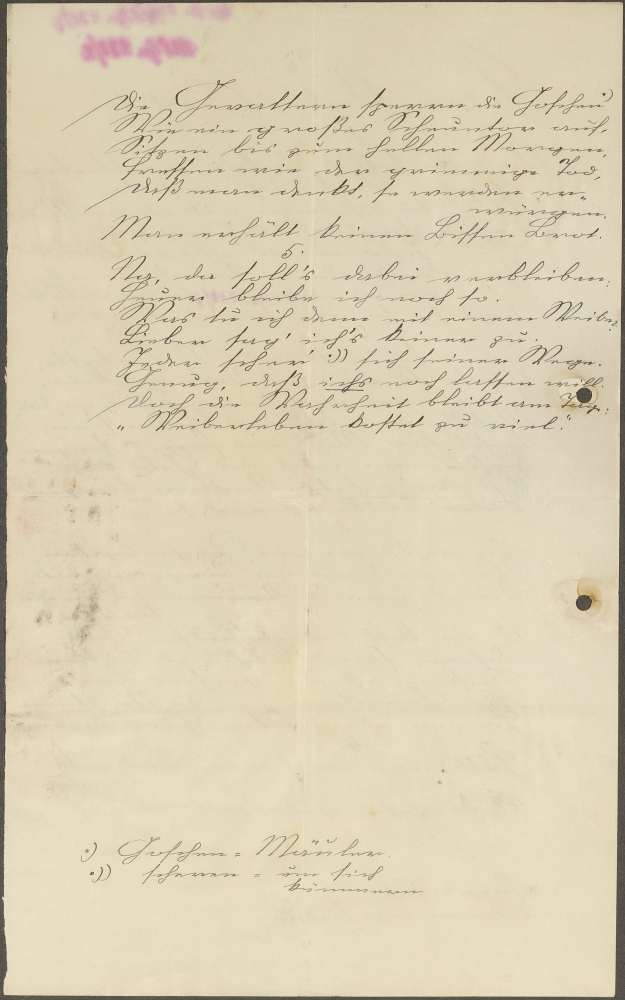 Die Gevattern sperrn die Goschen ·)
Wie ein großes Scheuntor auf,
Sitzen bis zum hellen Morgen,
Fressen wie der grimmige Tod,
Daß man denkt, sie werden er-
würgen.
Man erhält keinen Bissen Brot.
5.
Na, da soll's dabei verbleiben:
Heuer bleibe ich noch so.
Was tu ich denn mit einem Weibe?
Lieber sag' ich's keiner zu.
Jeder scher' ·)) sich seiner Wege.
Genug, daß ichs noch lassen will.
Doch die Wahrheit bleibt am Tag:
„Weiberleben kostet zu viel."
·) Goschen = Mäuler.
·)) scheren = um sich
kümmern